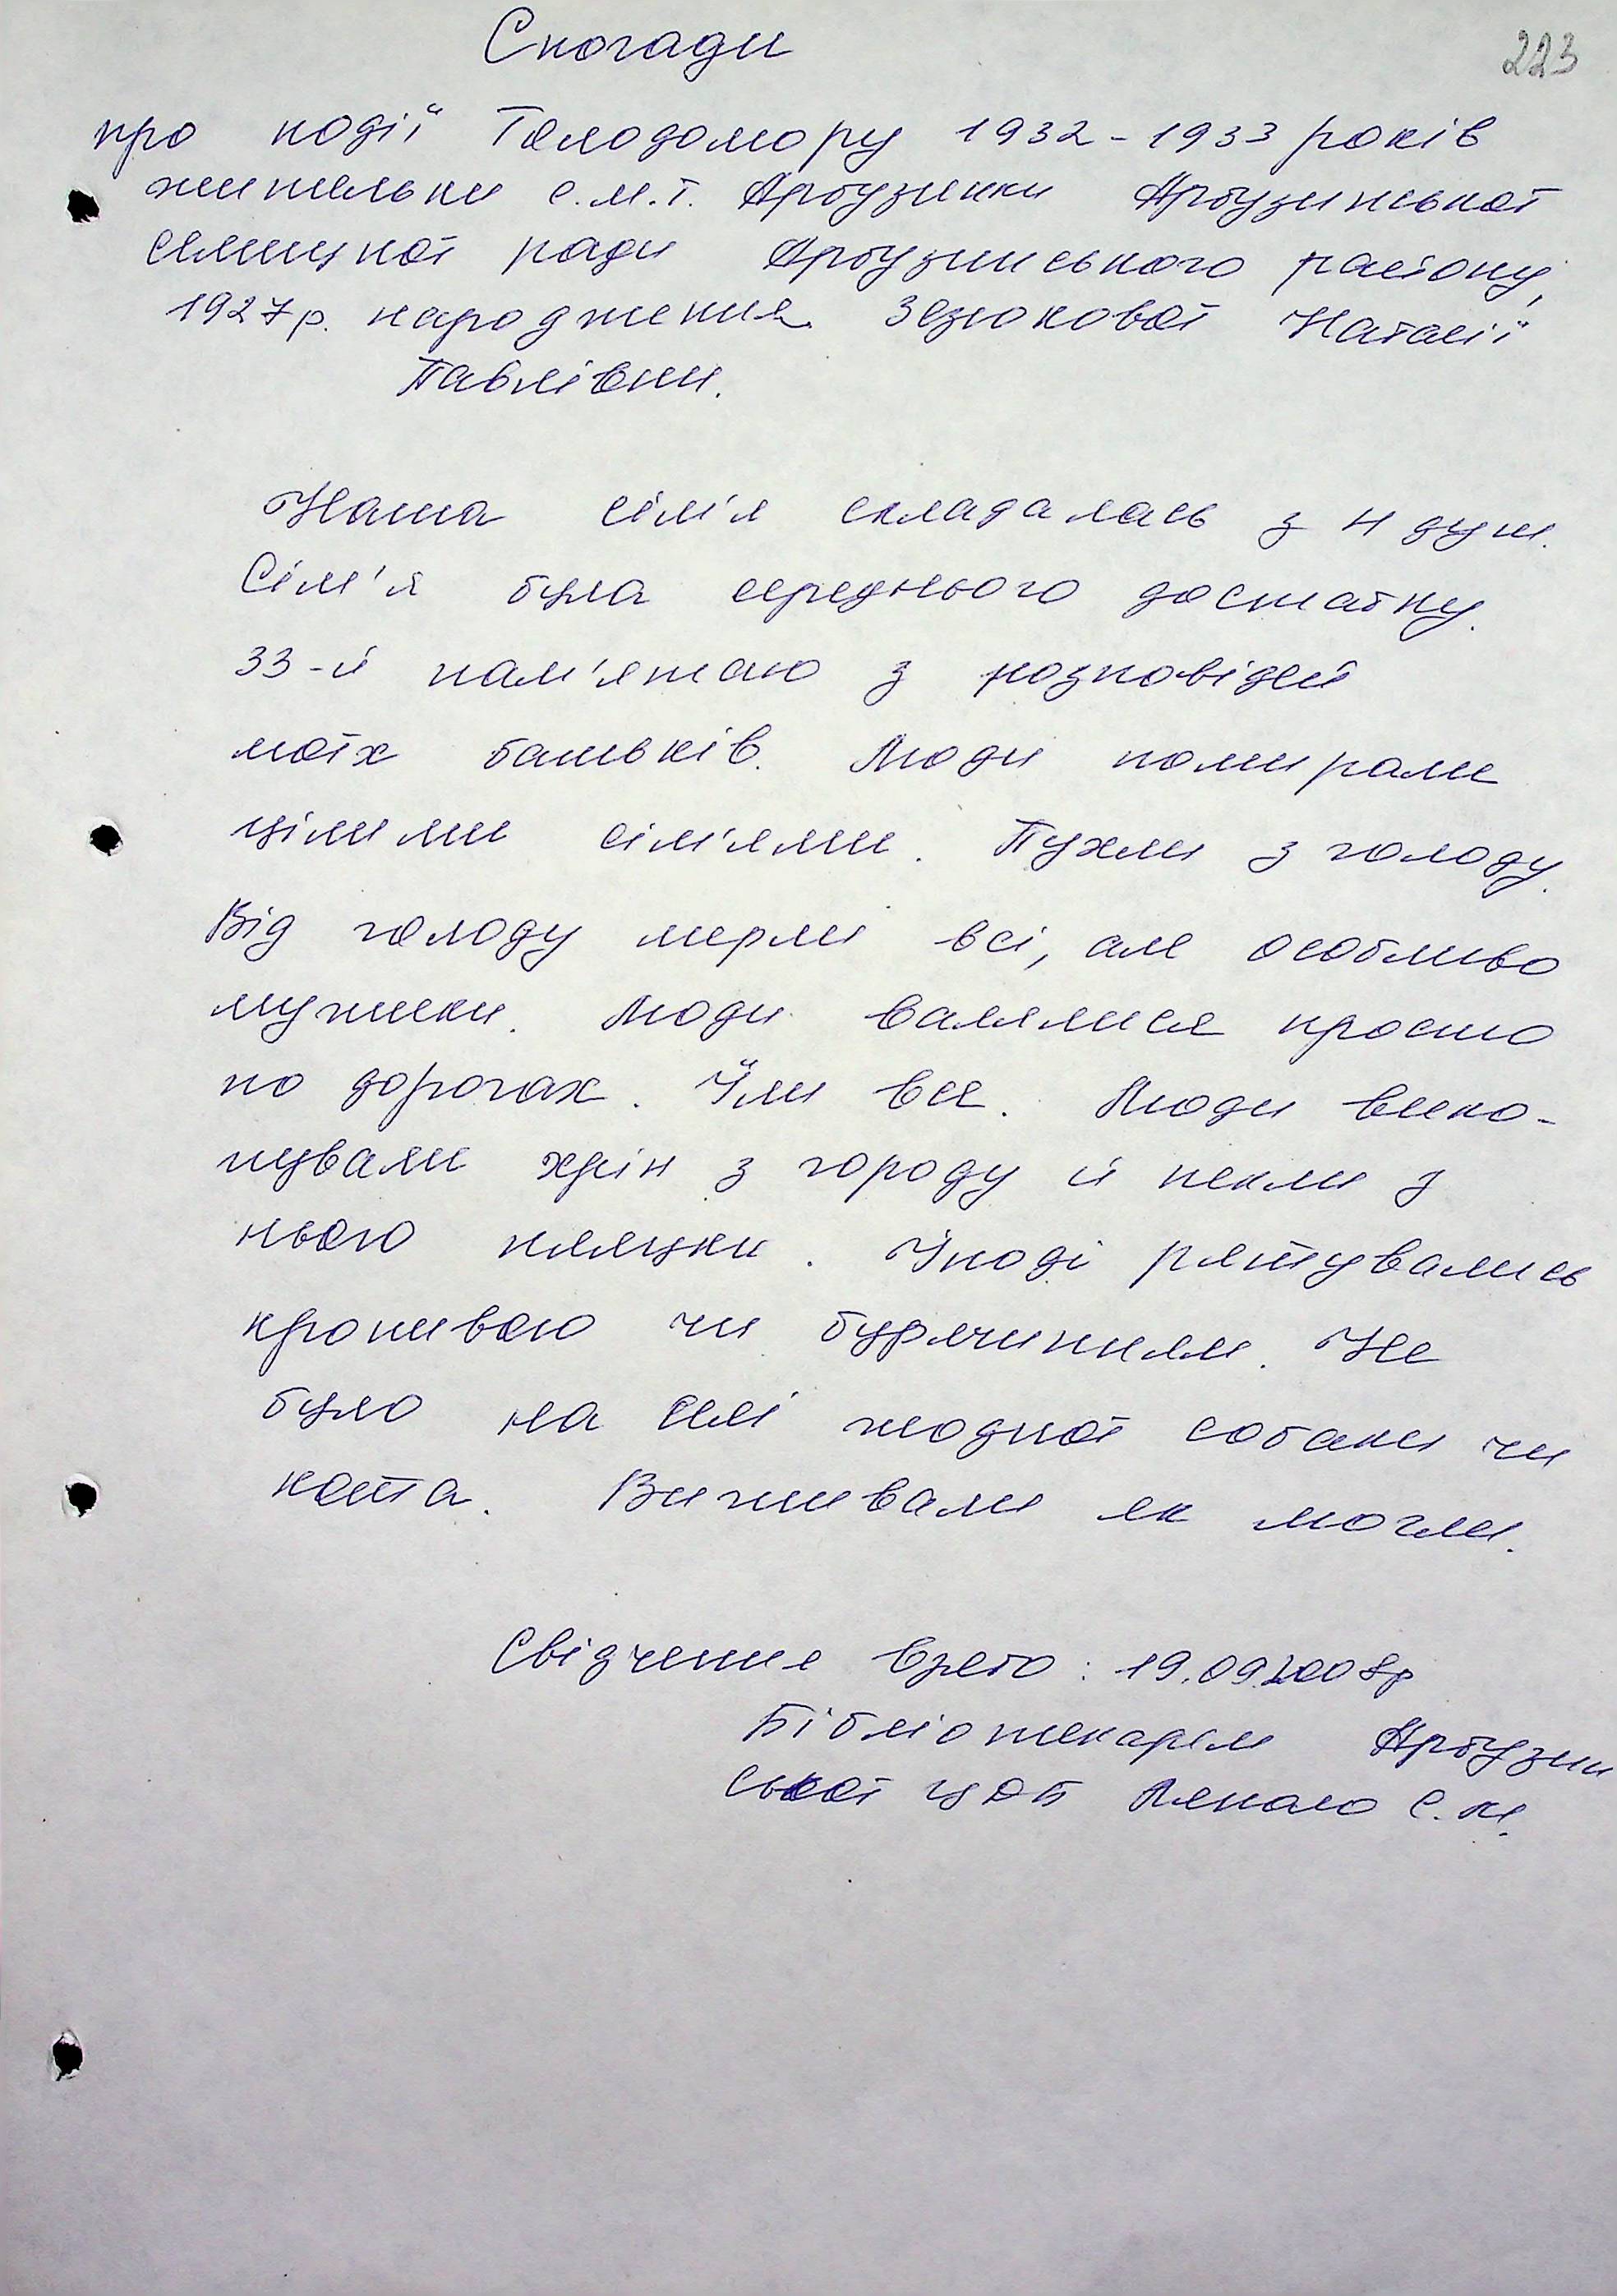 Спогади
223
про події Голодомору 1932-1933 років
жительки с.м.т. Арбузинки Арбузинської
селищної ради Арбузинського району,
1927р. народження Зезюкової Наталії
Павлівни.
Наша сім'я складалась з 4 душ.
Сім'я була середнього достатку.
33-й пам'ятаю з розповідей
моїх батьків. Люди помирали
цілими сім'ями. Пухли з голоду.
Від голоду мерли всі, але особливо
мужики. Люди валялися просто
по дорогах. Їли все. Люди вико-
пували хрін з городу й пекли з
нього пляцки. Іноді рятувались
кропивою чи бурячинням. Не
було на селі жодної собаки чи
кота. Виживали як могли.
Свідчення взято: 19.09.2008р
Бібліотекарем Арбузин
ської ЦДБ С.М.